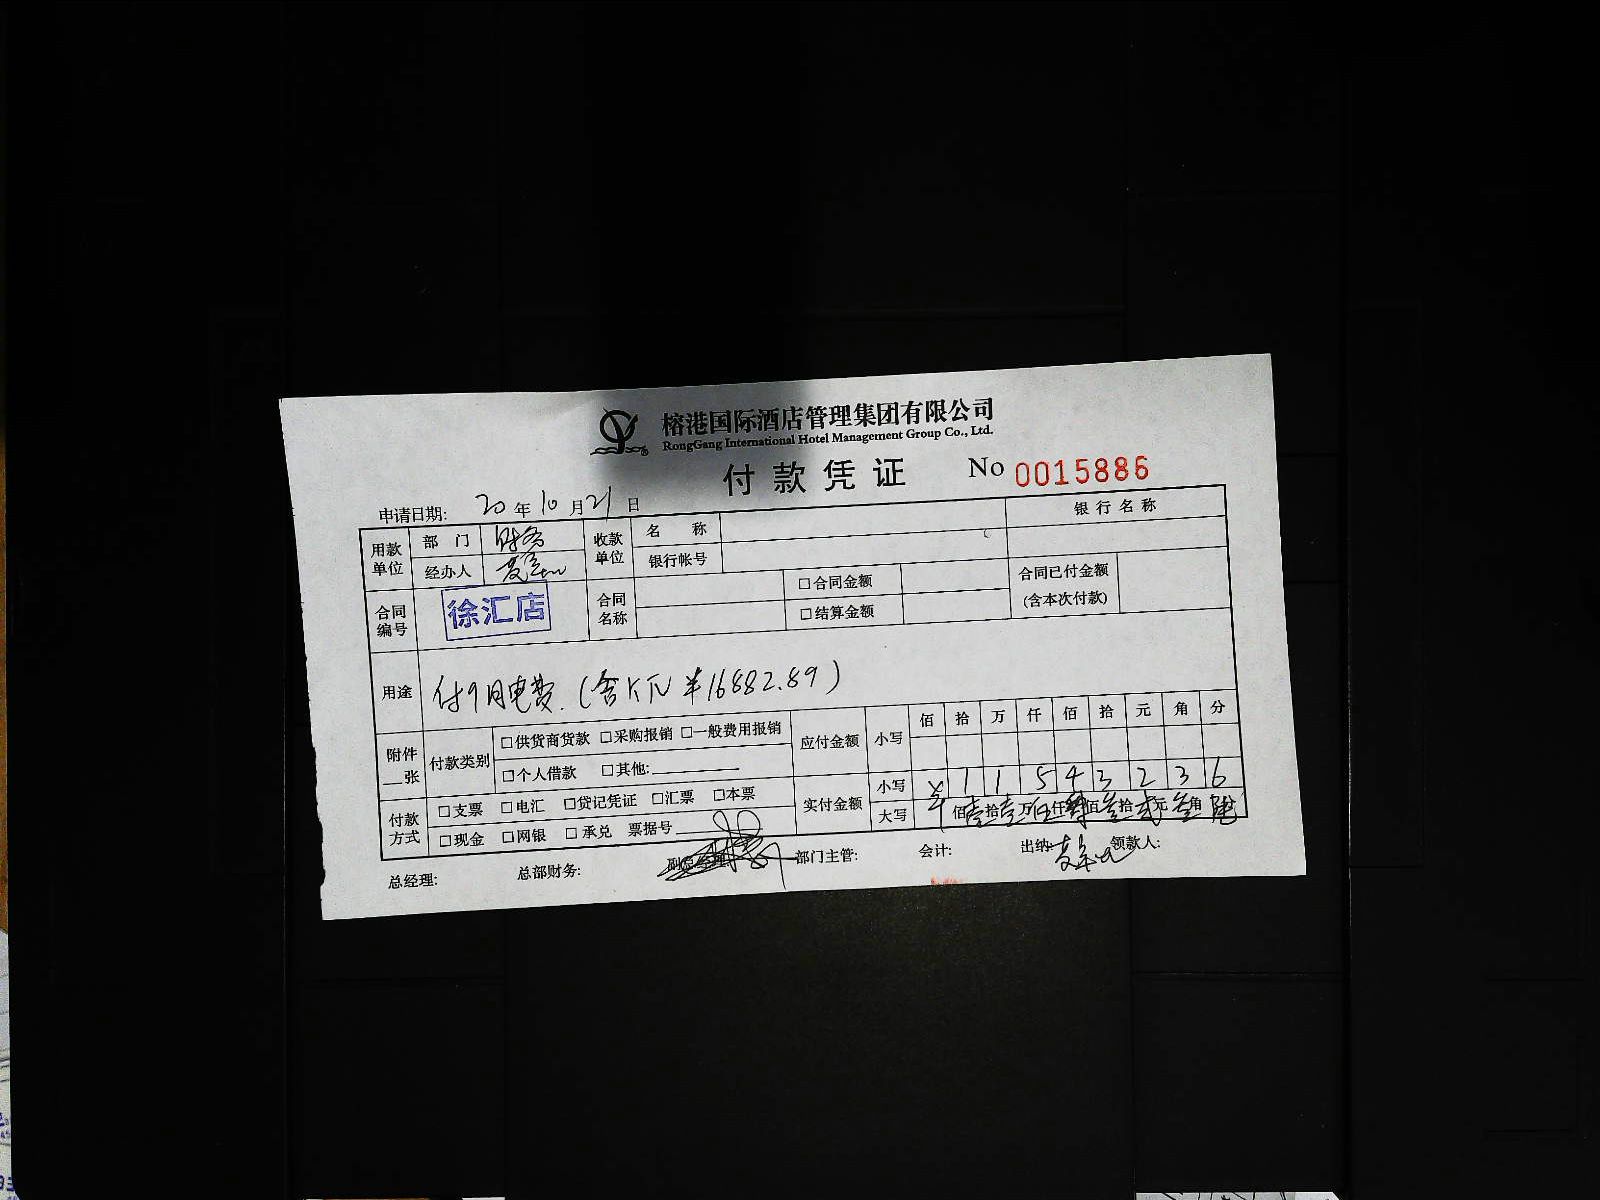 榕港国际酒店管理集团有限公司
RongGang International Hotel Management Group Co., Ltd.
付款凭证 No 0015886
申请日期: 20 年 10 月 21 日
用款单位 部门 财务 收款单位 名称 银行名称
经办人 银行帐号
合同编号 徐汇店 合同名称 □合同金额 合同已付金额
□结算金额 (含本次付款)
用途 付9月电费.(含KTV ¥16882.89)
附件 张 付款类别 □供货商货款 □采购报销 □一般费用报销 应付金额 小写 佰 拾 万 仟 佰 拾 元 角 分
□个人借款 □其他:
付款方式 □支票 □电汇 □贷记凭证 □汇票 □本票 实付金额 小写 ¥ 1 1 5 4 3 2 3 6
□现金 □网银 □承兑 票据号 大写 佰壹拾壹万伍仟肆佰叁拾贰元叁角陆
总经理: 总部财务: 副总经理 部门主管: 会计: 出纳: 领款人: